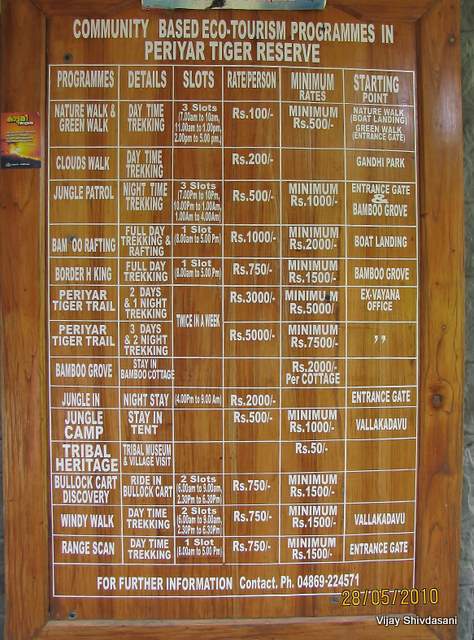 COMMUNITY BASED ECO-TOURISM PROGRAMMES IN
PERIYAR TIGER RESERVE
PROGRAMMES DETAILS SLOTS RATE/PERSON MINIMUM RATES STARTING POINT
NATURE WALK & GREEN WALK DAY TIME TREKKING 3 Slots (7.00am to 10am, 11.00am to 1.00pm, 2.00pm to 5.00 pm.) Rs.100/- MINIMUM Rs.500/- NATURE WALK (BOAT LANDING) GREEN WALK (ENTRANCE GATE)
CLOUDS WALK DAY TIME TREKKING Rs.200/- GANDHI PARK
JUNGLE PATROL NIGHT TIME TREKKING 3 Slots (7.00Pm to 10Pm, 10.00Pm to 1.00Am, 1.00Am to 4.00Am) Rs.500/- MINIMUM Rs.1000/- ENTRANCE GATE & BAMBOO GROVE
BAM OO RAFTING FULL DAY TREKKING & RAFTING 1 Slot (8.00am to 5.00 Pm) Rs.1000/- MINIMUM Rs.2000/- BOAT LANDING
BORDER H KING FULL DAY TREKKING 1 Slot (8.00am to 5.00 Pm) Rs.750/- MINIMUM Rs.1500/- BAMBOO GROVE
PERIYAR TIGER TRAIL 2 DAYS & 1 NIGHT TREKKING TWICE IN A WEEK Rs.3000/- MINIMUM Rs.5000/ EX-VAYANA OFFICE
PERIYAR TIGER TRAIL 3 DAYS & 2 NIGHT TREKKING Rs.5000/- MINIMUM Rs.7500/- ,,
BAMBOO GROVE STAY IN BAMBOO COTTAGE Rs.2000/- Per COTTAGE
JUNGLE IN NIGHT STAY (4.00Pm to 9.00 Am) Rs.2000/- ENTRANCE GATE
JUNGLE CAMP STAY IN TENT Rs.500/- MINIMUM Rs.1000/- VALLAKADAVU
TRIBAL HERITAGE TRIBAL MUSEUM & VILLAGE VISIT Rs.50/-
BULLOCK CART DISCOVERY RIDE IN BULLOCK CART 2 Slots (6.00am to 9.00am, 2.30Pm to 6.30Pm) Rs.750/- MINIMUM Rs.1500/-
WINDY WALK DAY TIME TREKKING 2 Slots (6.00am to 9.00am, 2.30Pm to 6.30Pm) Rs.750/- MINIMUM Rs.1500/- VALLAKADAVU
RANGE SCAN DAY TIME TREKKING 1 Slot (8.00am to 5.00 Pm) Rs.750/- MINIMUM Rs.1500/- ENTRANCE GATE
FOR FURTHER INFORMATION Contact. Ph. 04869-224571
28/05/2010
Vijay Shivdasani